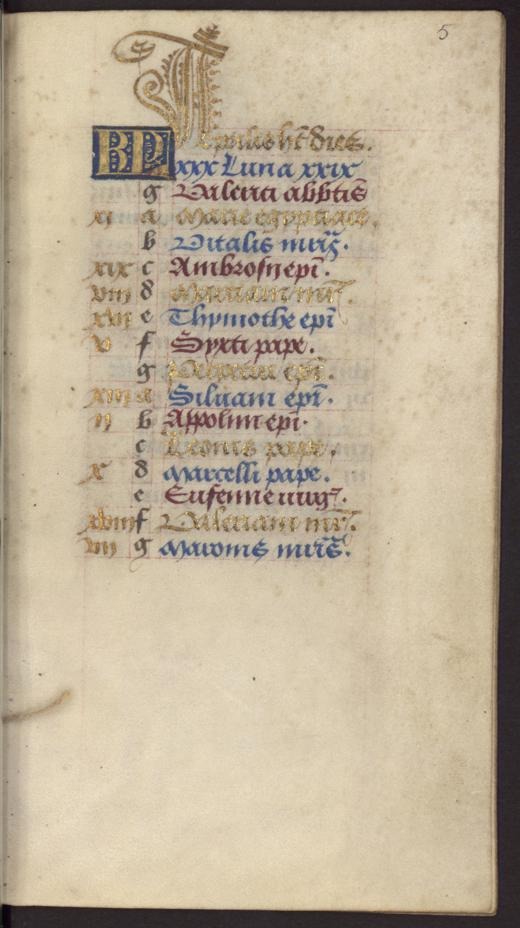 5
Aprilis ht dies.
KL xxx Luna xxix
g Valerici abbtis
xi a Marie egyptiace.
b Vitalis mris.
xix c Ambrosij epi.
viij d mr.
xvi e Thymothe epi
v f Syxti pape.
g epi.
xiij a Siluani epi.
ij b Appolini epi.
c Leonis pape.
x d Marcelli pape.
e Eufenne uirg.
xviij f Valeriani mr.
vij g Maronis mris.